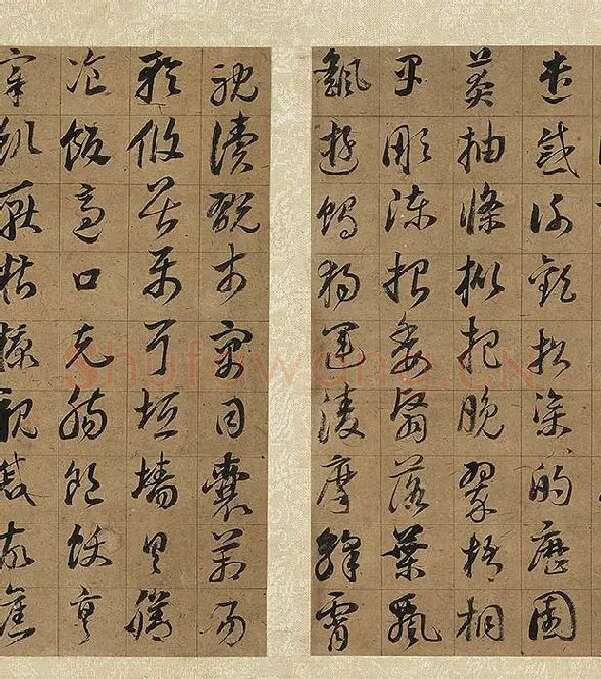 遣慼謝歡招渠的歷園
莽抽條枇杷晚翠梧桐
早凋陳根委翳落葉飄
颻遊鵾獨運凌摩絳霄
耽讀翫市寓目囊箱易
輶攸畏屬耳垣牆具膳
飡飯適口充腸飽飫烹
宰飢厭糟糠親戚故舊